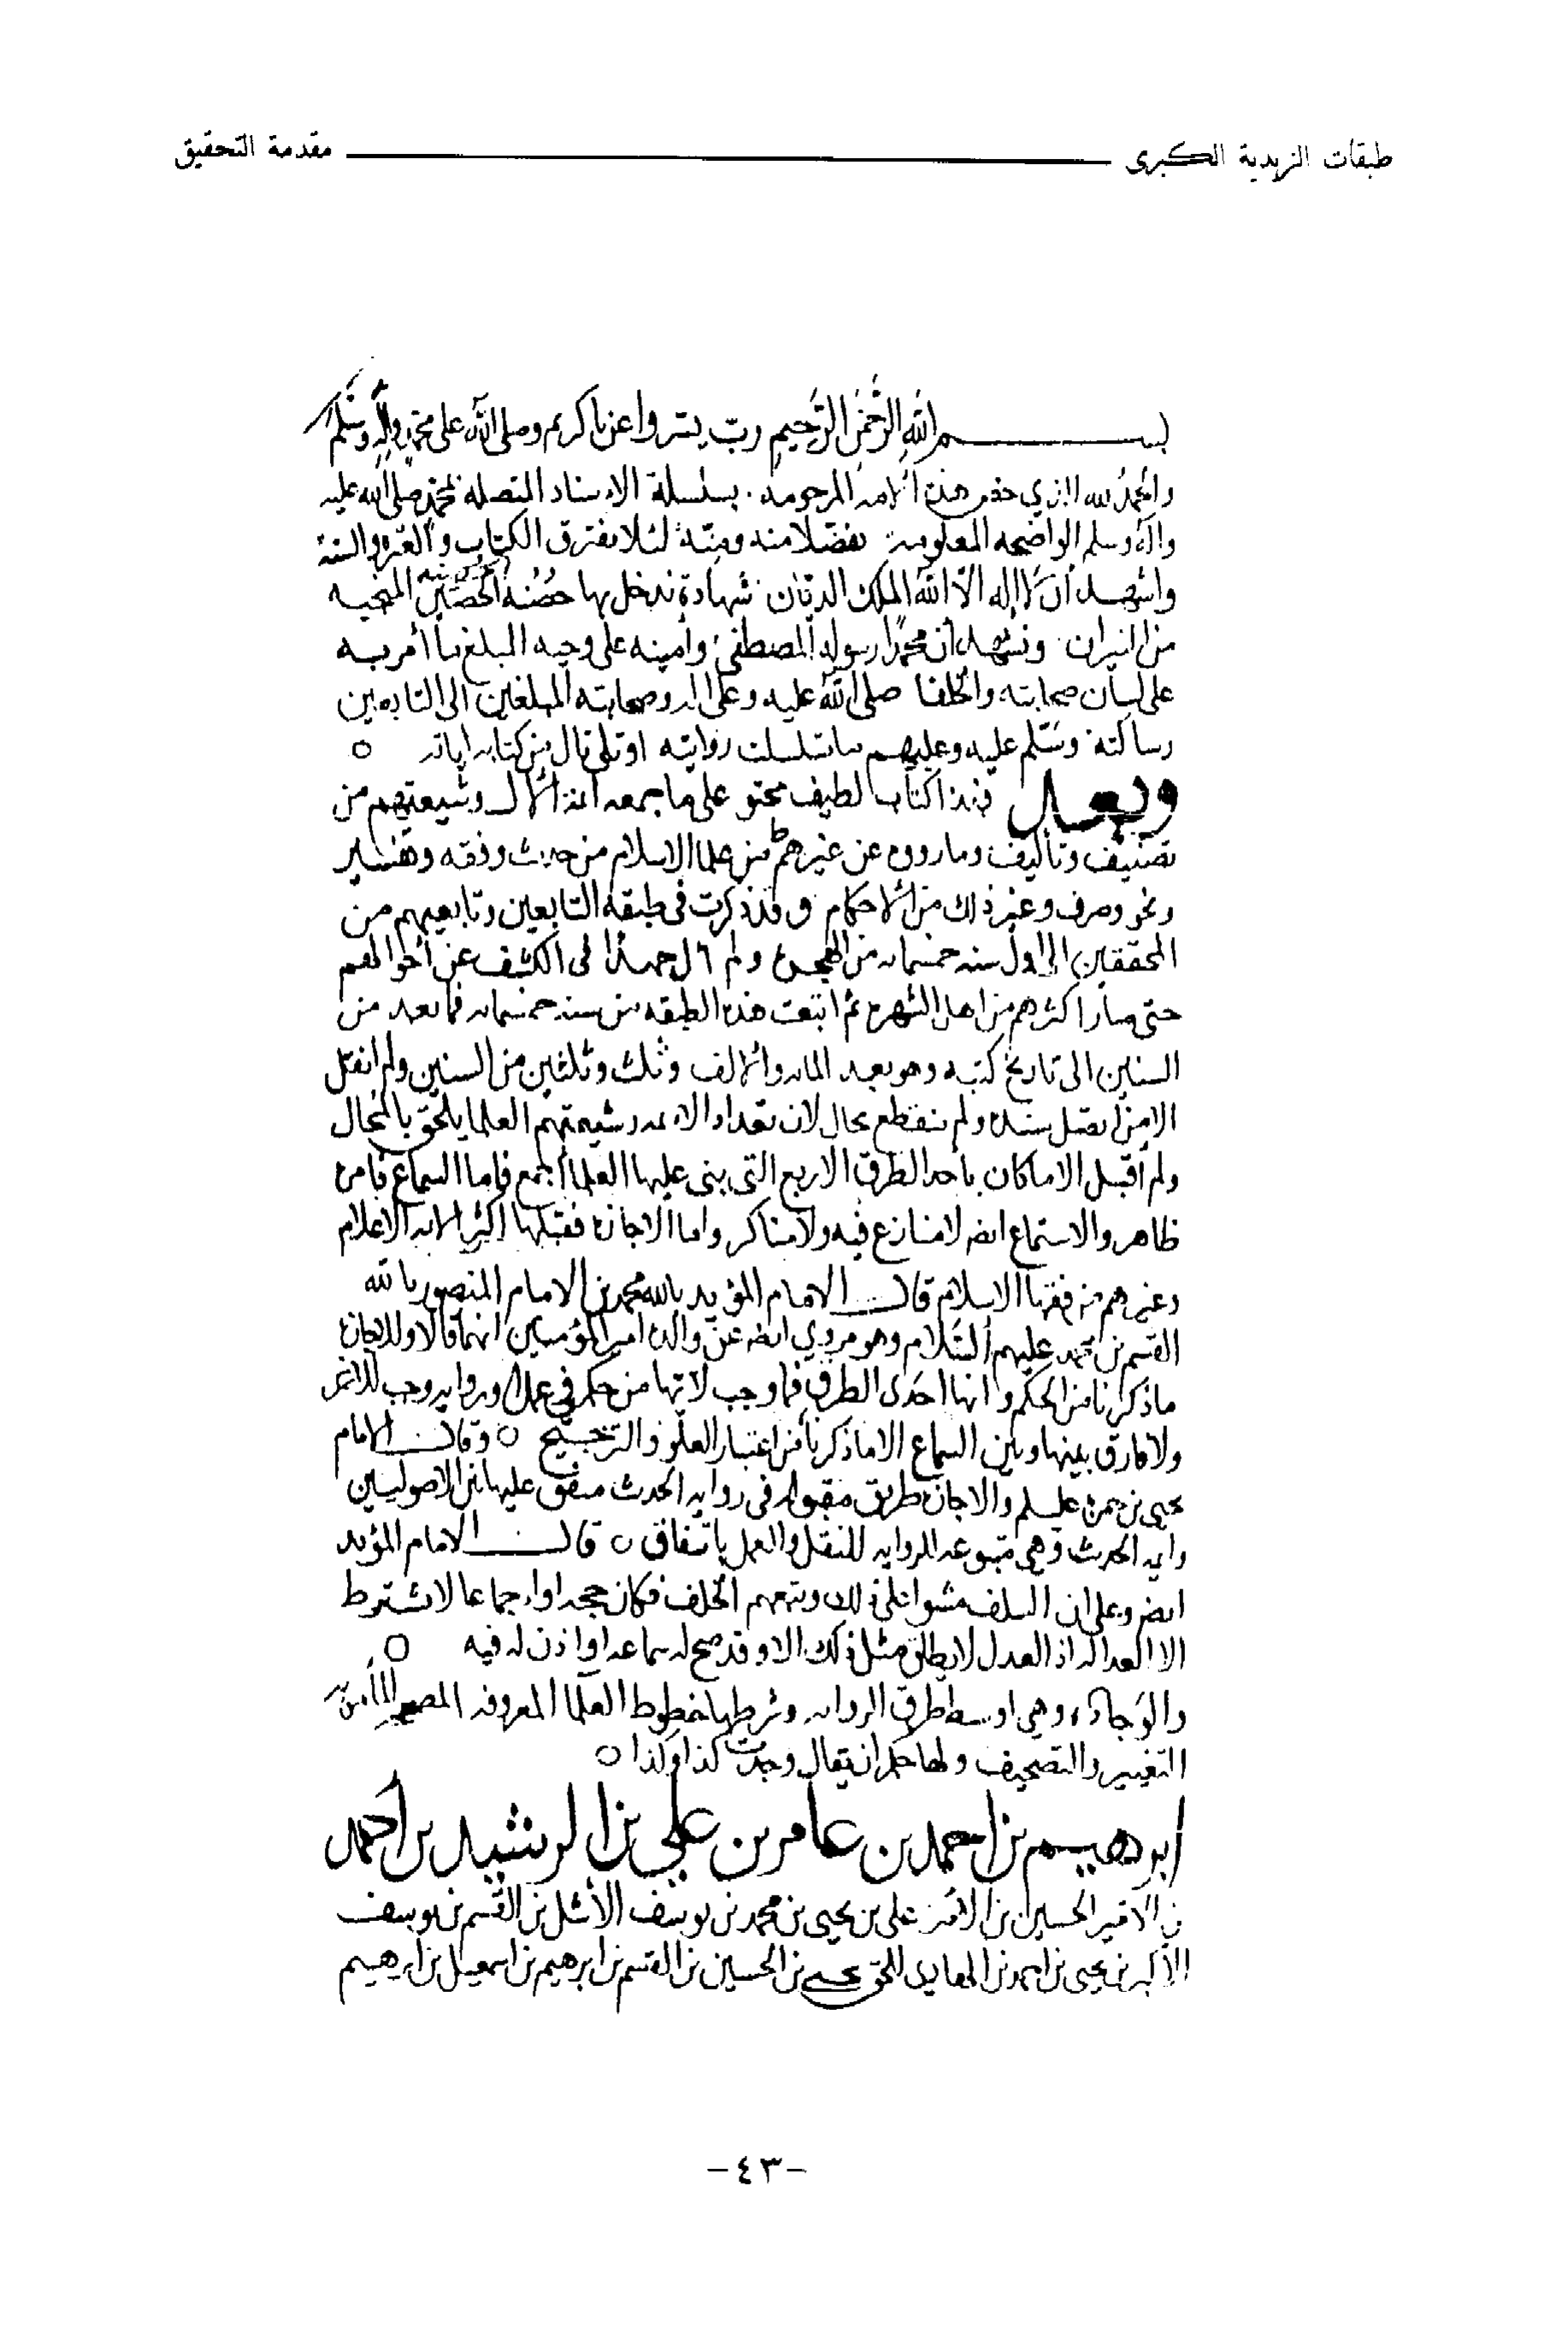 طبقات الزيدية الكبرى
مقدمة التحقيق
بسم الله الرحمن الرحيم رب يسر واعن يا كريم وصلى الله على محمد واله وسلم
والحمد لله الذي خص هذه الامه المرحومه بسلسلة الاسناد المتصله بمحمد صلى الله عليه
واله وسلم الواضحه المعلومه تفضلا منه ومنة لئلا يفترق الكتاب والعتره والسنة
واشهد أن لا إله الا الله الملك الديان شهادة ندخل بها حصنه الحصين المنجيه
من النيران ونشهد أن محمدا رسوله المصطفى وأمينه على وحيه المبلغ ما أمر به
على لسان صحابته والخلفا صلى الله عليه وعلى اله وصحابته المبلغين الى التابعين
رسالته وسلم عليه وعليهم ما تسلسلت روايته او تلى تال من كتابه اياته ○
وبعد فهذا كتاب لطيف محتو على ما جمعه ائمة الآل وشيعتهم من
تصنيف وتأليف وما رووه عن غيرهم من علما الاسلام من حديث وفقه وتفسير
ونحو وصرف وغير ذلك من الاحكام وقد ذكرت في طبقة التابعين وتابعيهم من
المحققين الى اول سنه خمسمايه من الهجرة ولم آل جهدا في الكشف عن أحوالهم
حتى صار اكثرهم من اهل الشهره ثم اتبعت هذه الطبقه من سنه خمسمايه فما بعد من
السنين الى تاريخ كتبه وهو بعد المايه والالف وثلث وثلثين من السنين ولم انقل
الا من اتصل سنده ولم ينقطع بحال لان تعداد الايمه وشيعتهم العلما يلحق بالمحال
ولم أقبل الا ما كان بأحد الطرق الاربع التي بنى عليها العلما أجمع فاما السماع فامره
ظاهر والاستماع ايضا لا منازع فيه ولا مناكر واما الاجازة فقبلها اكثر الايمه الاعلام
وغيرهم من فقها الاسلام قال الامام المؤيد بالله محمد بن الامام المنصور بالله
القسم بن محمد عليهم السلام وهو مروي ايضا عن والده امير المؤمنين انهما قالا وللاجازة
ما ذكرنا من الحكم وانها احدى الطرق فما وجب لاتيها من حكم في عمل او روايه وجب للاخر
ولا فارق بينها وبين السماع الا ما ذكرنا من اعتبار العلو والترجيح ○ وقال الامام
يحيى بن حمزة علسلم والاجازة طريق مقبوله في روايه الحديث متفق عليها بين الاصوليين
وايمه الحديث وهي متبوعه الروايه للنقل والعمل باتفاق ○ قال الامام المؤيد
ايضا وعلى ان السلف مشوا على ذلك وتبعهم الخلف فكان حجه اواجماعا لا يشترط
الا العداله اذ العدل لا يطلق مثل ذلك الا وقد صح له سماعه او اذن له فيه ○
والوجاده وهي اوسط طرق الروايه وشرطها خطوط العلما المعروفه المصير الى امن
التغيير والتصحيف ولها حكم ان يقال وجدت كذا وكذا ○
ابرهيم بن احمد بن عامر بن علي بن الرشيد بن أحمد
بن الامير الحسين بن الامير علي بن يحيى بن محمد بن يوسف الأشل بن القسم بن يوسف
الأكبر بن يحيى بن احمد بن الهادي للحق يحيى بن الحسين بن القسم بن ابرهيم بن اسمعيل بن ابرهيم
-٤٣-